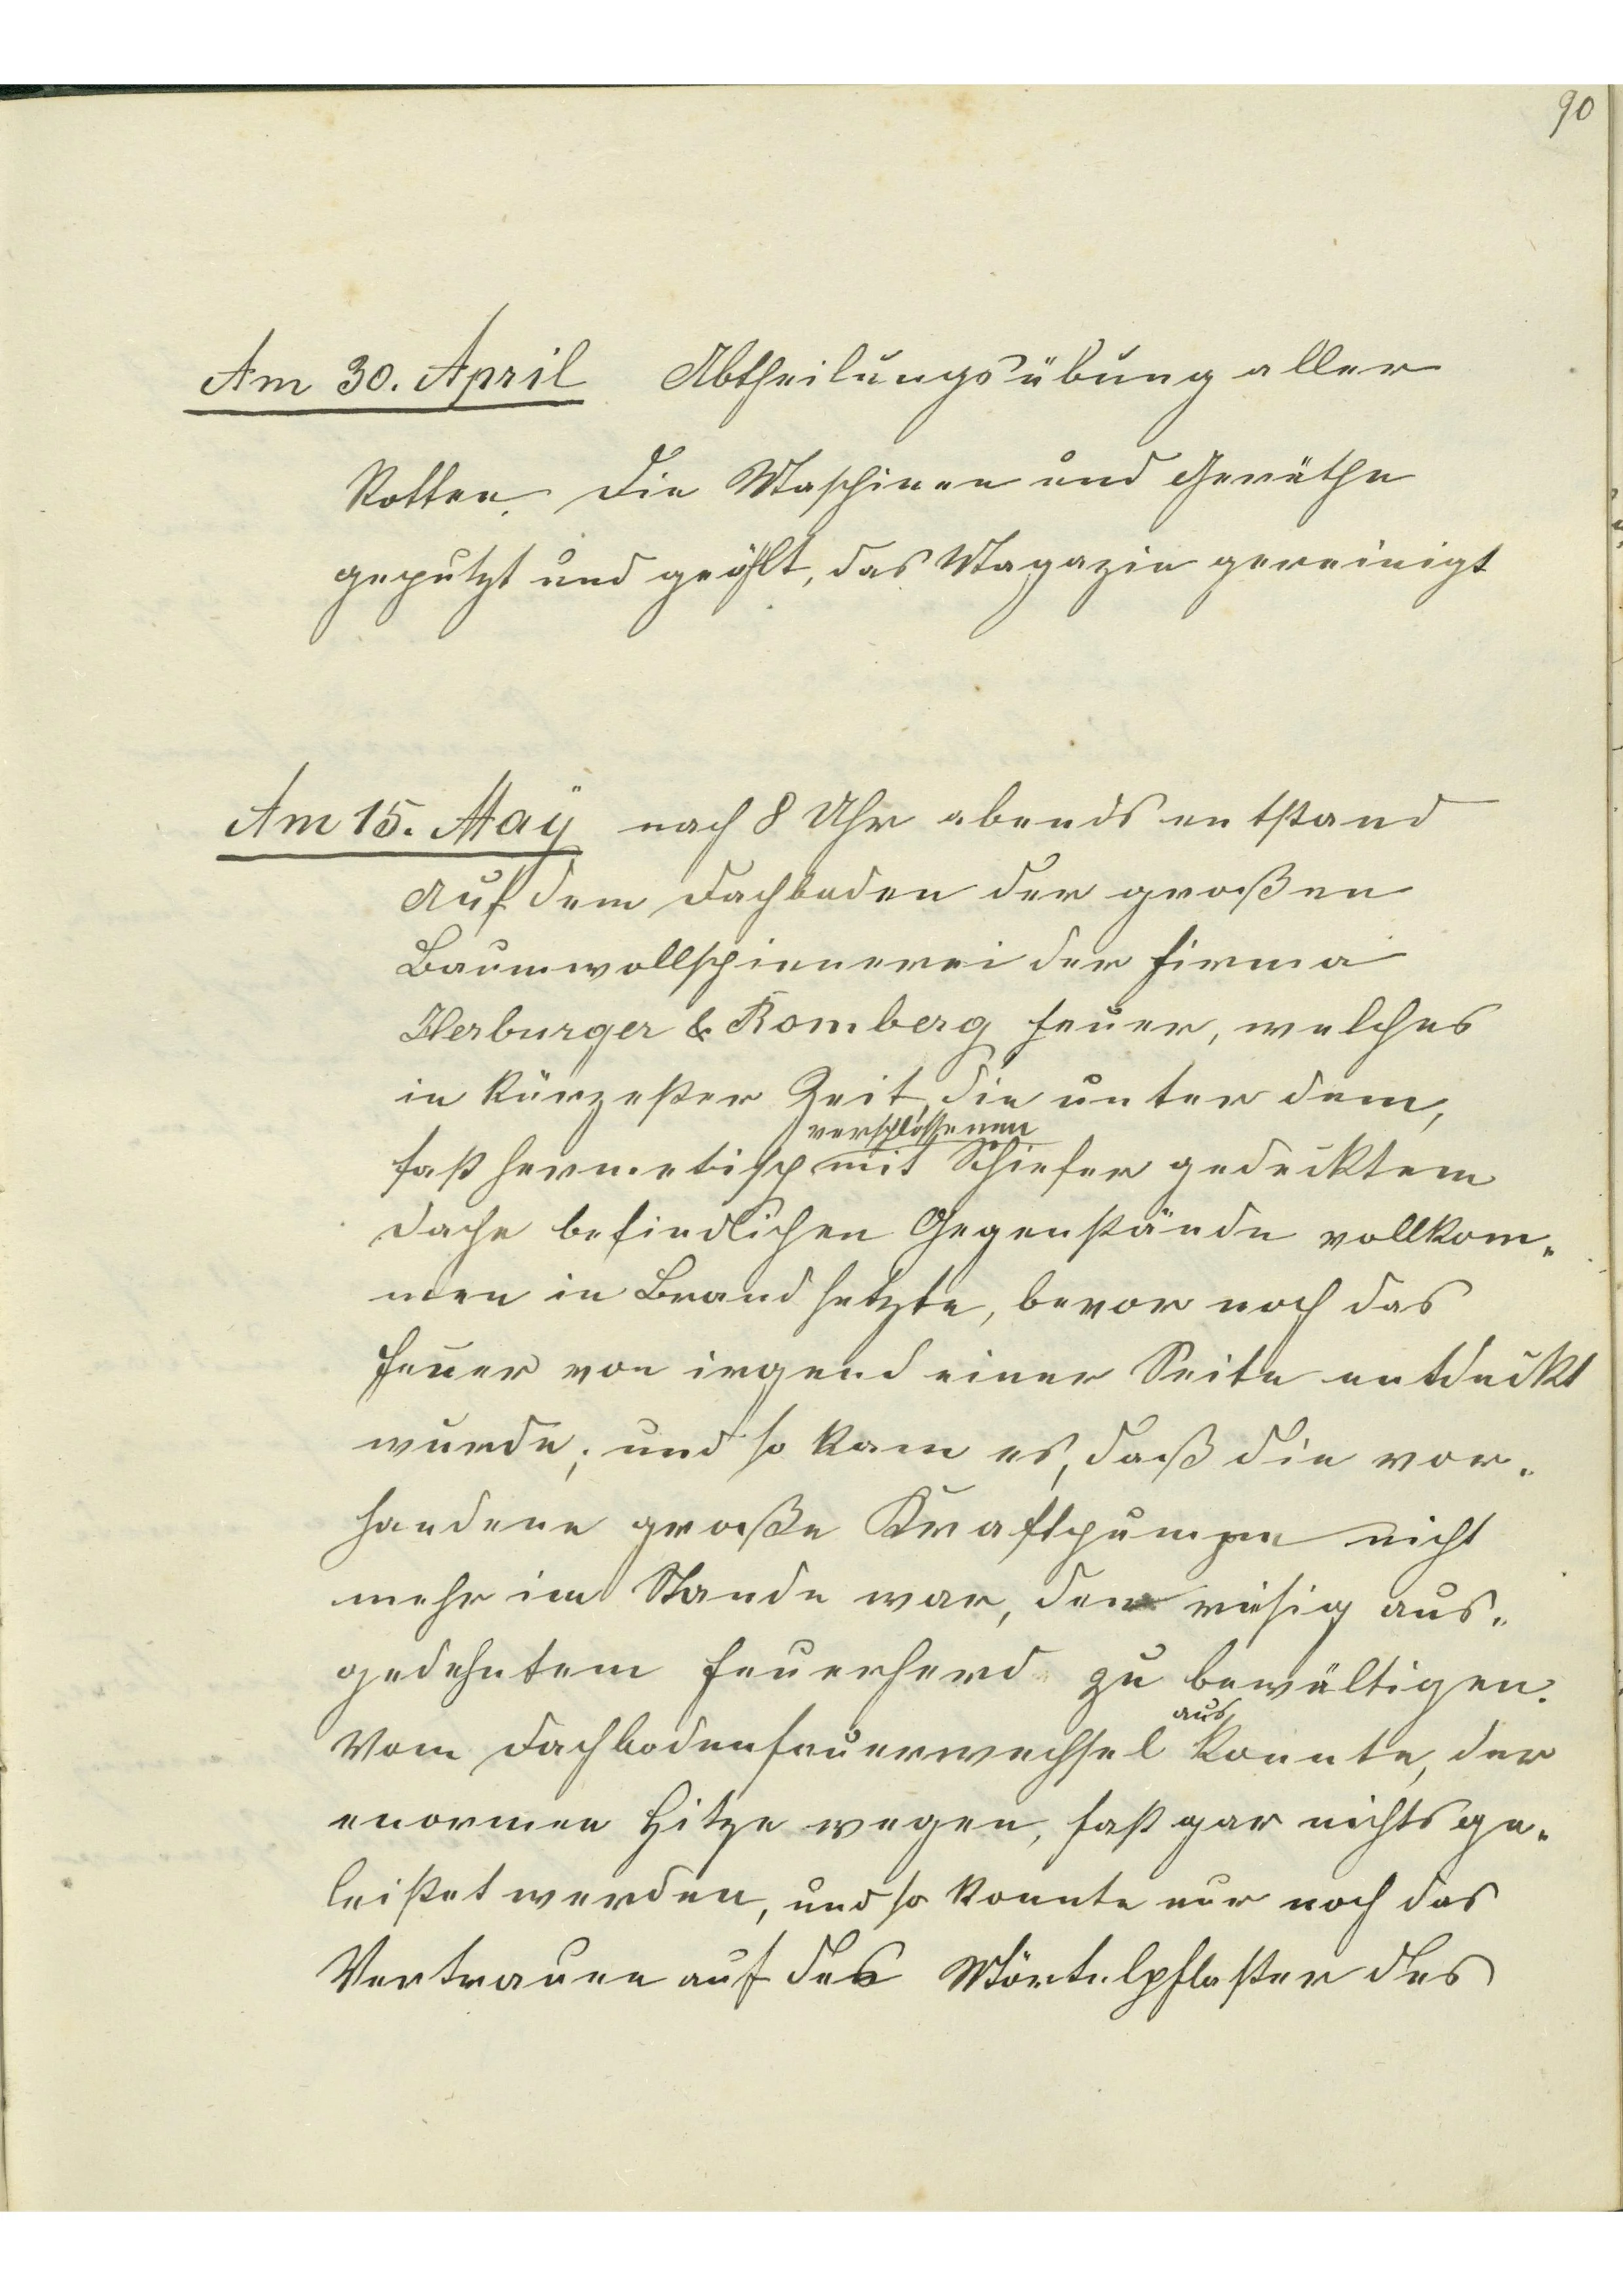 90
Am 30. April Abtheilungsübung aller
Rotten. Die Maschinen und Geräthe
geputzt und geöhlt, das Magazin gereinigt
Am 15. Maÿ nach 8 Uhr abends entstand
auf dem Dachboden der großen
Baumwollspinnerei der Firma
Herburger & Romberg Feuer, welches
in kürzester Zeit, die unter dem,
verschlossenen
fast hermetisch mit Schiefer gedecktem
Dache befindlichen Gegenstände vollkom„
men in Brand setzte, bevor noch das
Feuer von irgend einer Seite entdeckt
wurde; und so kam es, daß die vor„
handene große Kraftpumpe nicht
mehr im Stande war, den riesig aus„
gedehntem Feuerherd zu bewältigen.
aus
Vom Dachbodenfeuerwechsel konnte, der
enormen Hitze wegen, fast gar nichts ge„
leistet werden, und so konnte nur noch das
Vertrauen auf das Mörtelpflaster des